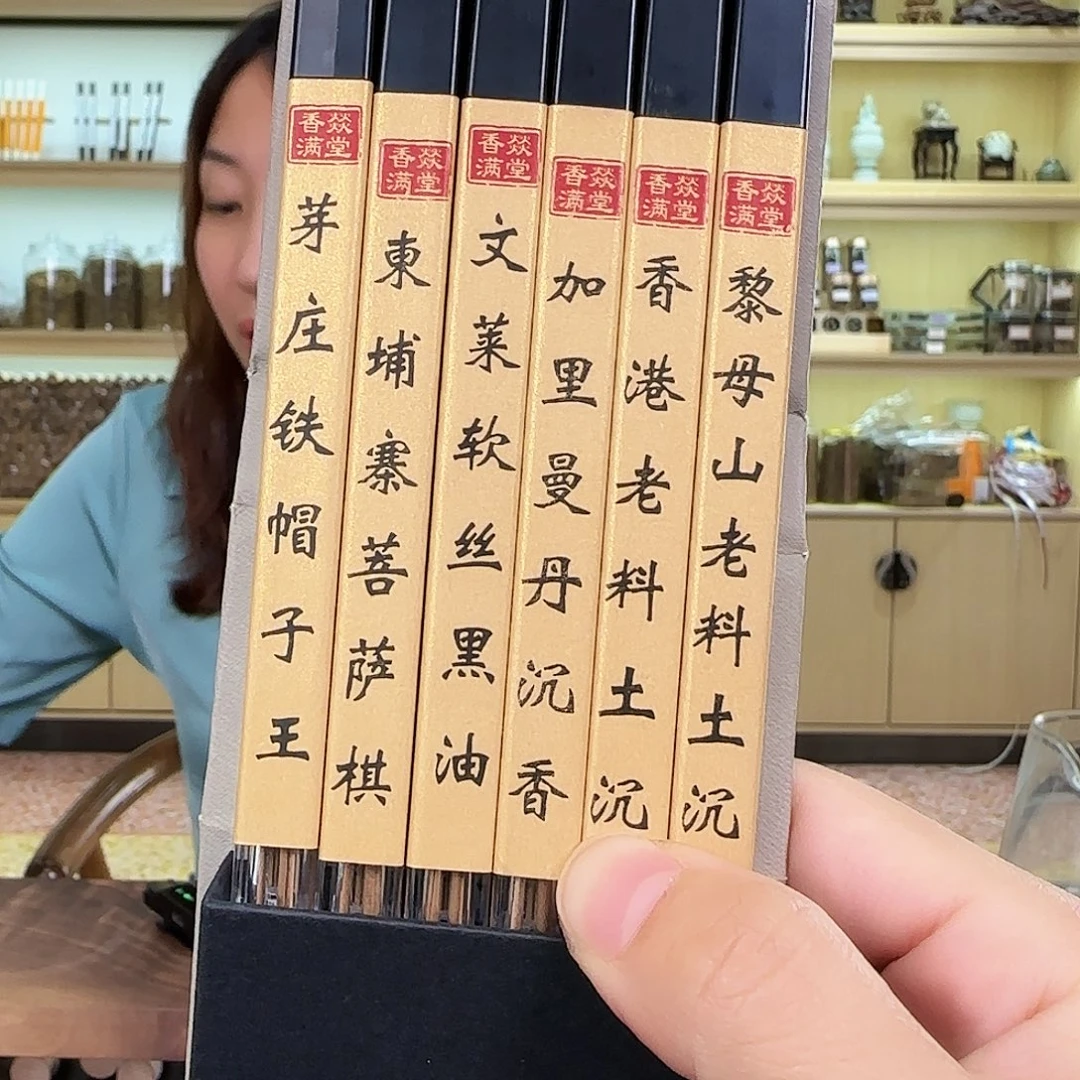 香燚
满堂
芽庄铁帽子王
香燚
满堂
東埔寨菩萨棋
香燚
满堂
文莱软丝黑油
香燚
满堂
加里曼丹沉香
香燚
满堂
香港老料土沉
香燚
满堂
黎母山老料土沉